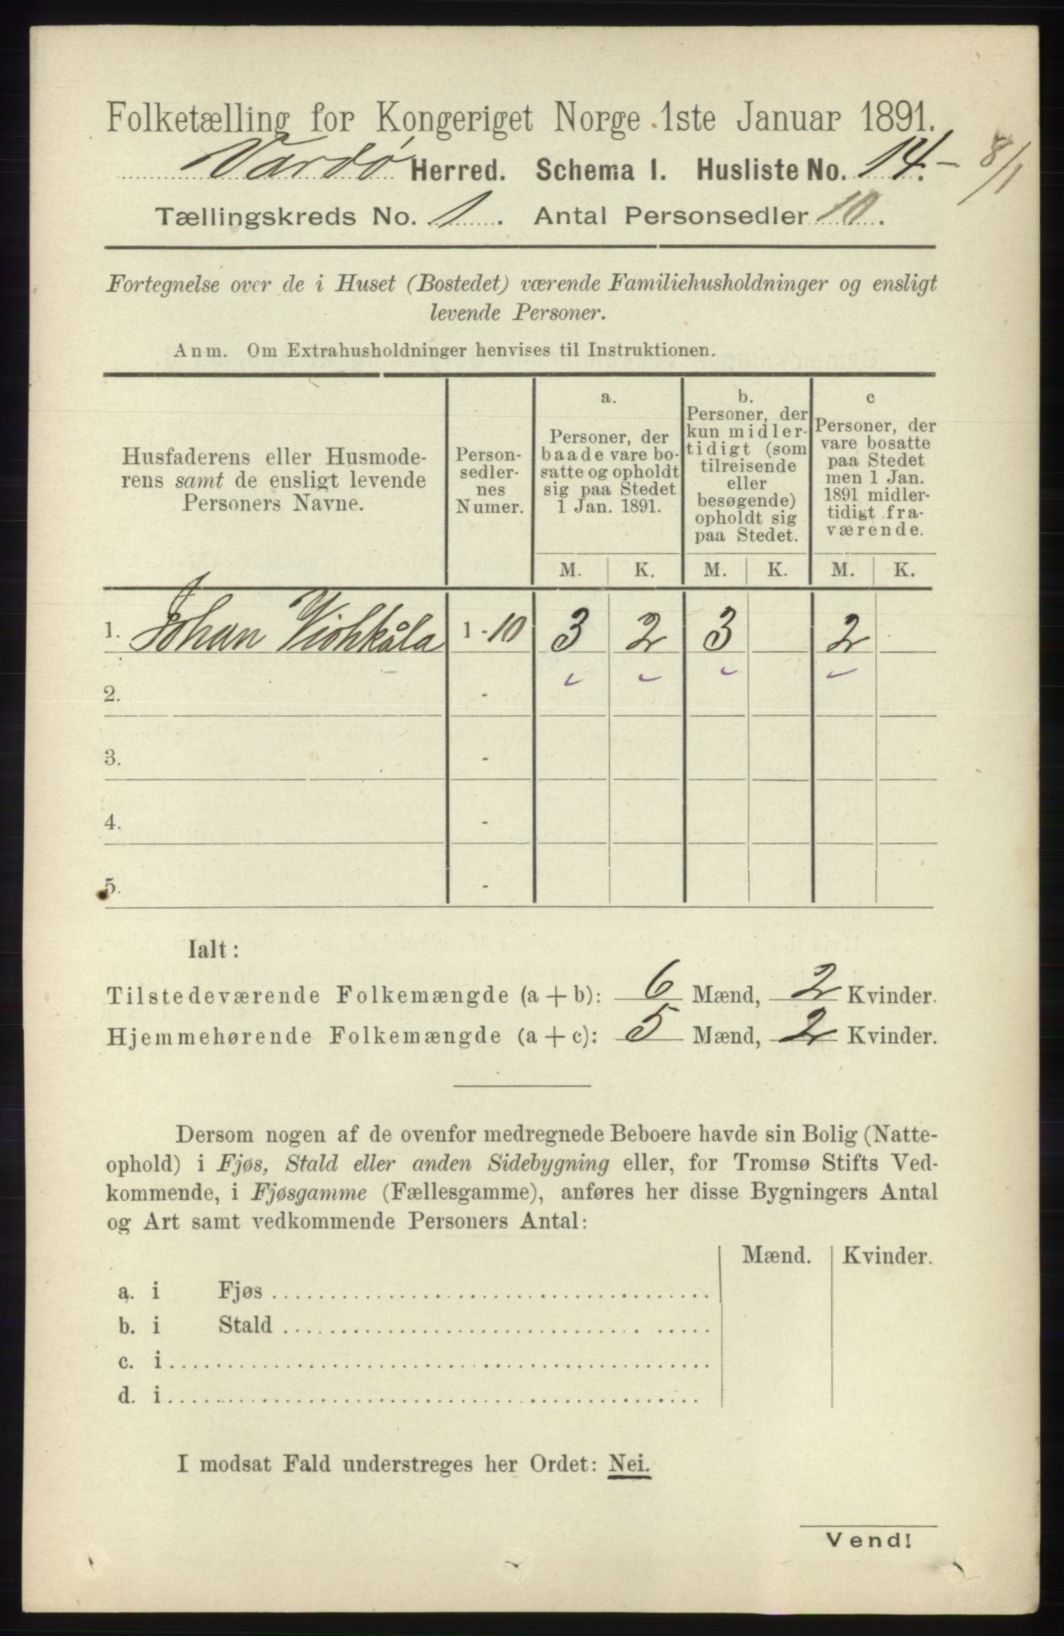 Folketælling for Kongeriget Norge 1ste Januar 1891.
Vardø Herred. Schema I. Husliste No. 14. - 8/1
Tællingskreds No. 1. Antal Personsedler 10.
Fortegnelse over de i Huset (Bostedet) værende Familiehusholdninger og ensligt
levende Personer.
Anm. Om Extrahusholdninger henvises til Instruktionen.
Husfaderens eller Husmode-
rens samt de ensligt levende
Personers Navne.
Person-
sedler-
nes
Numer.
a.
Personer, der
baade vare bo-
satte og opholdt
sig paa Stedet
1 Jan. 1891.
b.
Personer, der
kun midler-
tidigt (som
tilreisende
eller
besøgende)
opholdt sig
paa Stedet.
c
Personer, der
vare bosatte
paa Stedet
men 1 Jan.
1891 midler-
tidigt fra-
værende.
M. K. M. K. M. K.
1. Johan 1-10 3 2 3 2
2. -
3. -
4. -
5. -
Ialt:
Tilstedeværende Folkemængde (a + b): 6 Mænd, 2 Kvinder.
Hjemmehørende Folkemængde (a + c): 5 Mænd, 2 Kvinder.
Dersom nogen af de ovenfor medregnede Beboere havde sin Bolig (Natte-
ophold) i Fjøs, Stald eller anden Sidebygning eller, for Tromsø Stifts Ved-
kommende, i Fjøsgamme (Fællesgamme), anføres her disse Bygningers Antal
og Art samt vedkommende Personers Antal:
Mænd. Kvinder.
a. i Fjøs
b. i Stald
c. i
d. i
I modsat Fald understreges her Ordet: Nei.
Vend!